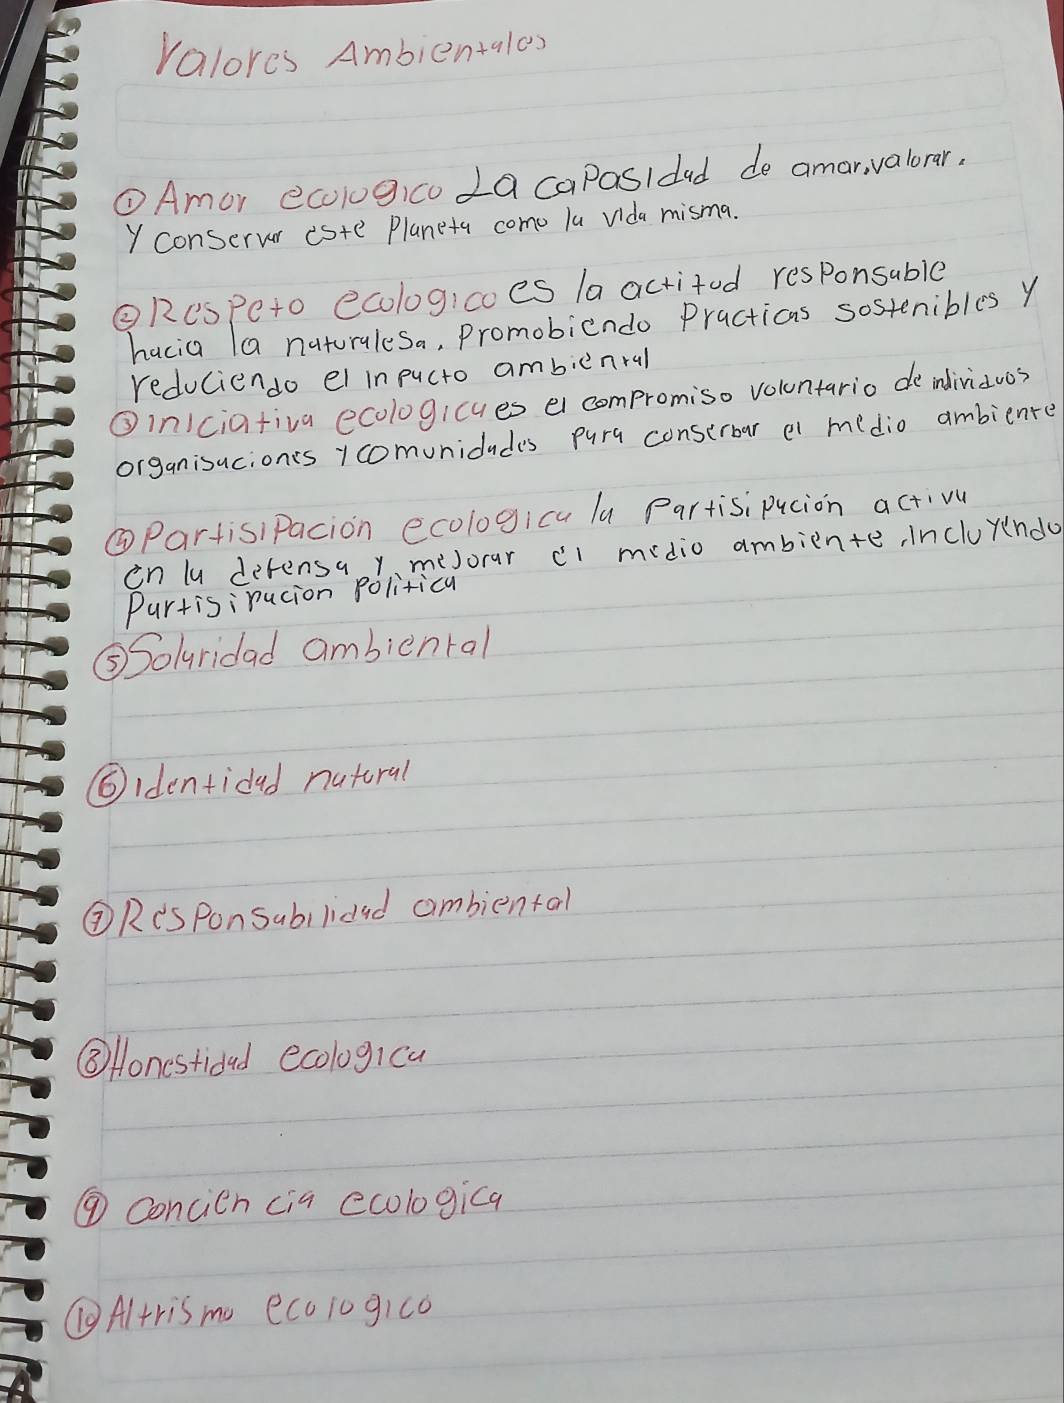 Valores Ambientales
① Amor ecologico La capasidad de amar, valorar.
y conservar este Planeta como la vida misma.
② Respeto ecologico es la actitud responsable
hacia la naturalesa, promobiendo Practicas sostenibles y
reduciendo el inpacto ambiental
③ iniciativa ecologica es el compromiso voluntario de individuos
organisaciones y comunidades para conserbar el medio ambiente
④ Partisipacion ecologica la Partisipación activa
en la defensa y mejorar el medio ambiente, incluyendo
Partisipacion política
⑤ Solaridad ambiental
⑥ identidad natural
⑦ Responsabilidad ambiental
⑧ Honestidad ecologica
⑨ conciencia ecologica
⑩ Altrismo ecologico